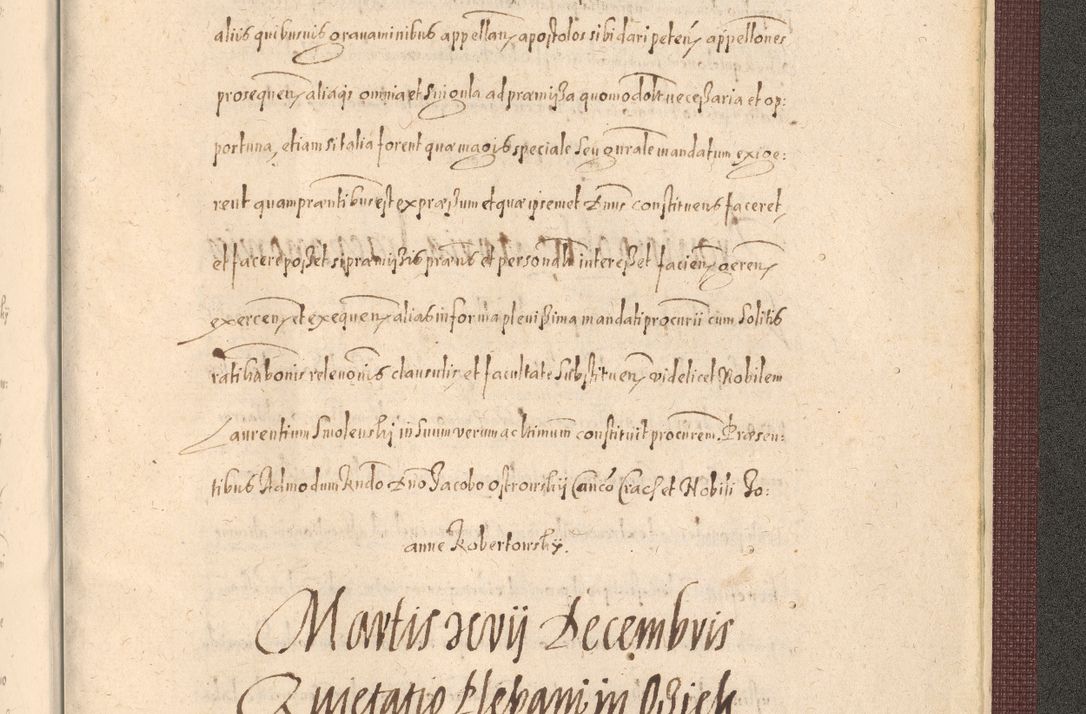 aliis quibusuis grauaminibus appellan, apostolos sibi dari peten, appellones
prosequen, aliaqs omnia et singula ad præmissa quomodolt necessaria et op:
portuna, etiam si talia forent quæ magis speciale seu gnrale mandatum exige:
rent quam prntibus est expræssum et quæ ipsemet Dnus constituens faceret,
et facere posset si præmissis præns et personalr interesset facien, geren,
exercen, et exequen, alias in forma plenissima mandati procurii cum solitis
ratihabonis releuonis clausulis et facultate substituen, videlicet Nobilem
Laurentium Smolenskj in suum verum ac ltimum constituit procurem. Præsen:
tibus Admodum Rndo Dno Jacobo Ostrowskij Canco Crac et Nobili Jo:
anne Robertowskij.
Martis xvij Decembris
Quietatio Plebani in Osiek